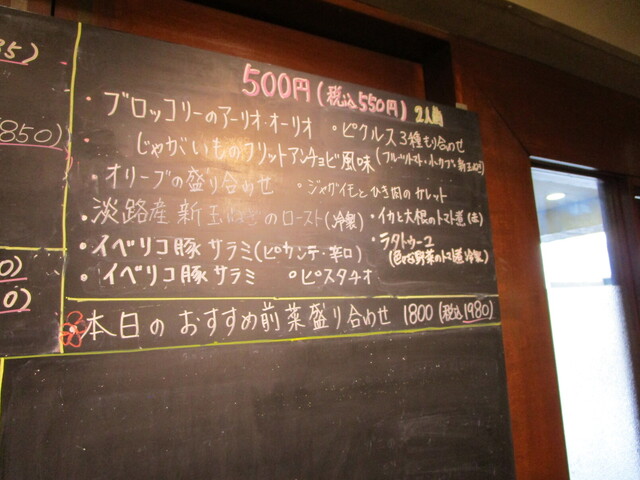 500円(税込550円)
・ブロッコリーのアーリオ・オーリオ
・ピクルス3種もり合わせ
(フルーツトマト・小カブ・新玉
・じゃがいものフリットアンチョビ風味
・オリーブの盛り合わせ
・ジャガイモとひき肉のガレット
・淡路産 新玉ねぎのロースト(冷製)
・イカと大根のトマト煮(温)
・イベリコ豚サラミ(ピカンテ・辛口)
・ラタトゥーユ
野菜のトマト煮 冷製)
・イベリコ豚サラミ
・ピスタチオ
本日のおすすめ前菜盛り合わせ 1800(税込1980)
850)
0)
0)